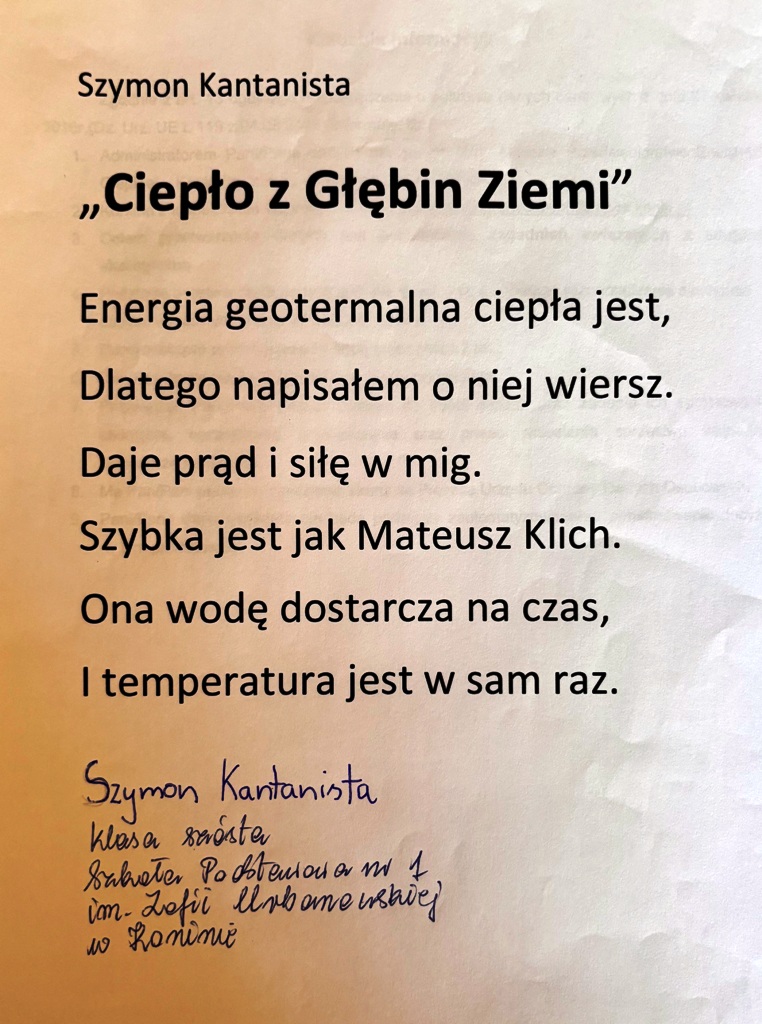 Szymon Kantanista
„Ciepło z Głębin Ziemi”
Energia geotermalna ciepła jest,
Dlatego napisałem o niej wiersz.
Daje prąd i siłę w mig.
Szybka jest jak Mateusz Klich.
Ona wodę dostarcza na czas,
I temperatura jest w sam raz.
Szymon Kantanista
klasa szósta
Szkoła Podstawowa nr 1
im. Zofii Urbanowskiej
w Koninie